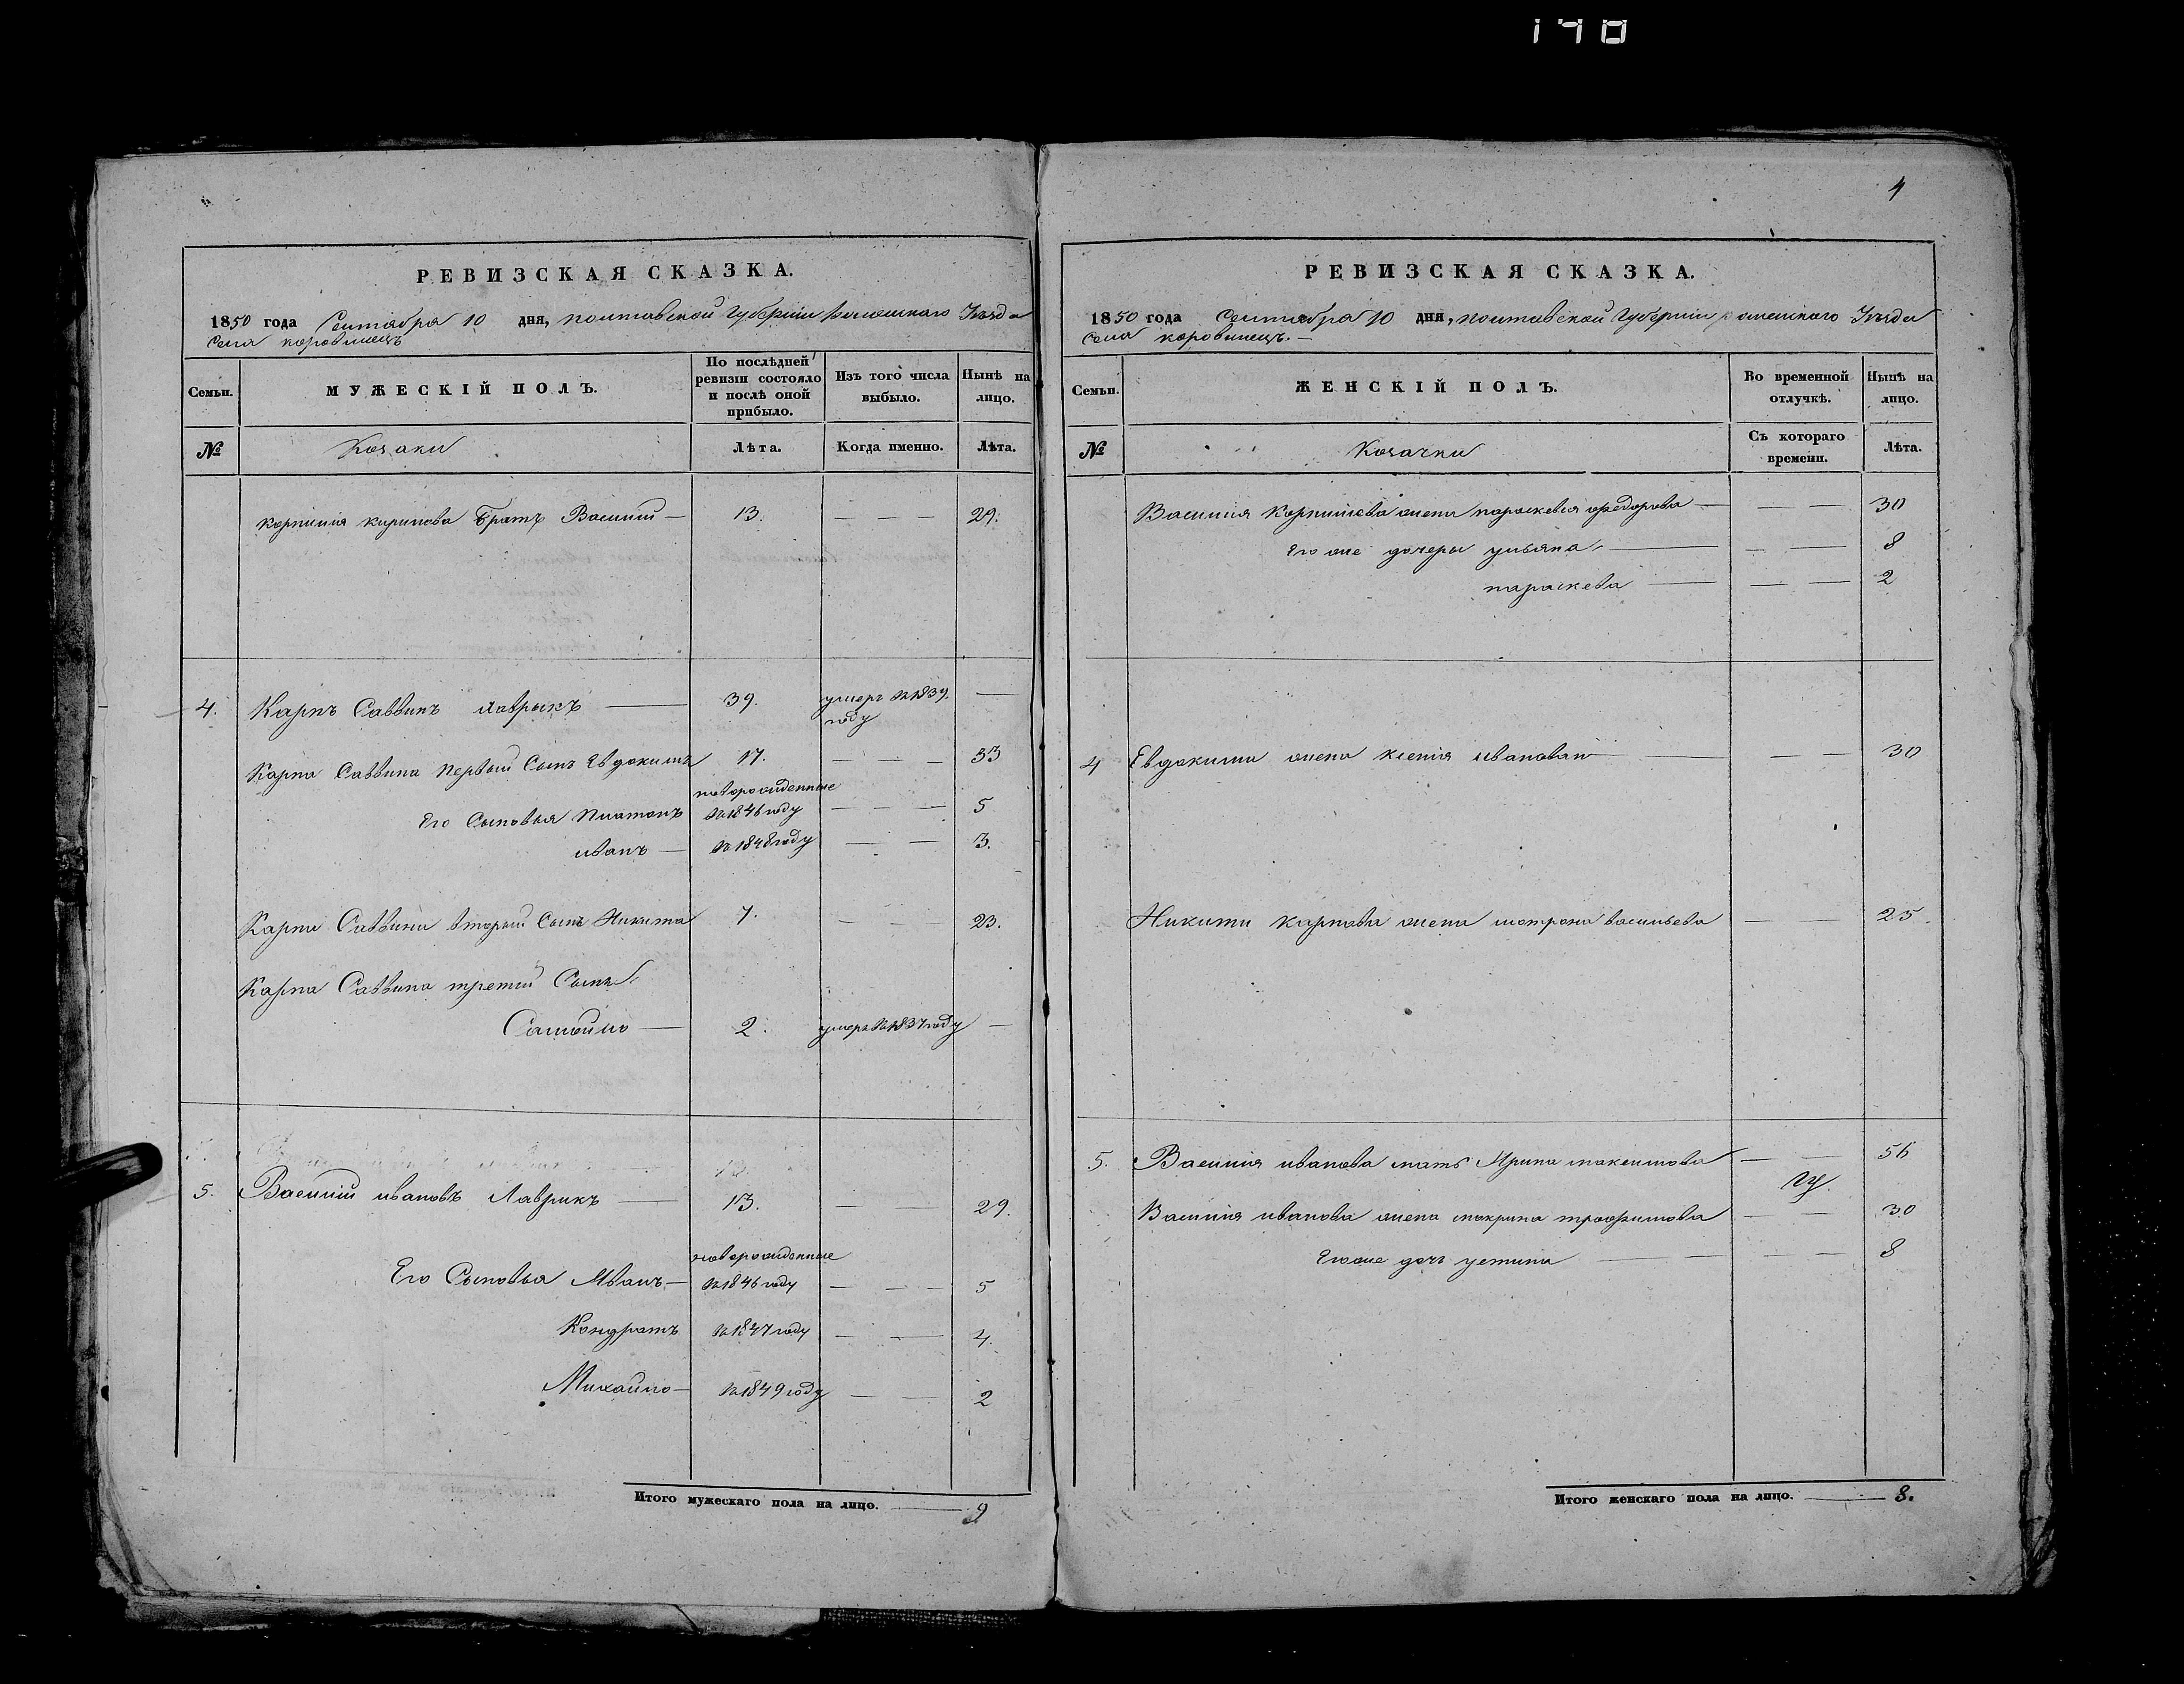 140
РЕВИЗСКАЯ СКАЗКА.
1850 года Сентября 10 дня, полтавской Губерніи Роменского Уѣзда
Села коровинецъ
Семьи.
МУЖЕСКІЙ ПОЛЪ.
По послѣдней ревизіи состояло и послѣ оной прибыло.
Изъ того числа выбыло.
Нынѣ на лицо.
№
Козаки
Лѣта.
Когда именно.
Лѣта.
корнилія кирилова Братъ Василій — 13. — — 29.
4. Карпъ Саввинъ лаврыкъ — 39. умеръ въ 1839. году —
Карпа Саввина первый Сынъ Евдокимъ 17. — — 33
новорожденные
Его Сыновья Платонъ въ 1846 году — — 5
иванъ — въ 1848 году — — 3.
Карпа Саввина вторый Сынъ Никита 7. — — 23.
Карпа Саввина третій Сынъ
Самойло — 2. умеръ въ 1837 году —
5. Василій ивановъ Лаврикъ — 13. — — 29.
новорожденные
Его Сыновья Иванъ — въ 1846 году — — 5
Кондратъ въ 1847 году — — 4.
Михайло — въ 1849 году — — 2
Итого мужескаго пола на лицо. — 9
4
РЕВИЗСКАЯ СКАЗКА.
1850 года Сентября 10 дня, полтавской Губерніи роменского Уѣзда
Села коровинецъ. —
Семьи.
ЖЕНСКІЙ ПОЛЪ.
Во временной отлучкѣ.
Нынѣ на лицо.
№
Козачки
Съ котораго времени.
Лѣта.
Василія Корнилова жена параскевія федорова — — — 30
Его же дочеры ульяна — — — 8
параскева — — — 2
4 Евдокима жена ксенія иванована — — — 30
Никиты карпова жена мотрона васильева — — 25.
5. Василія иванова мать Ирина максимова — — 56
Василія иванова жена макрина трофимова — — 30
Его же дочь устина — — — 8
Итого женскаго пола на лицо. — 8.